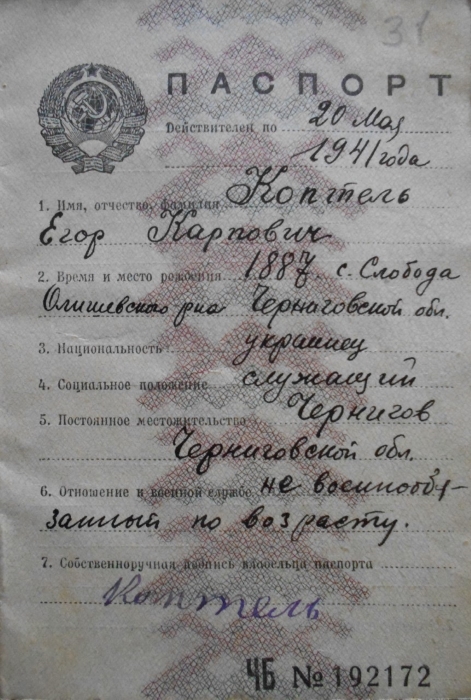 31
ПАСПОРТ
Действителен по 20 Мая
1941 года
1. Имя, отчество, фамилия Коптель
Егор Карпович
2. Время и место рождения 1887 с. Слобода
Олишевского р-на Черниговской обл.
3. Национальность украинец
4. Социальное положение служащий
5. Постоянное местожительство Чернигов
Черниговской обл.
6. Отношение к военной службе не военнообя-
занный по возрасту.
7. Собственноручная подпись владельца паспорта
Коптель
ЧБ № 192172